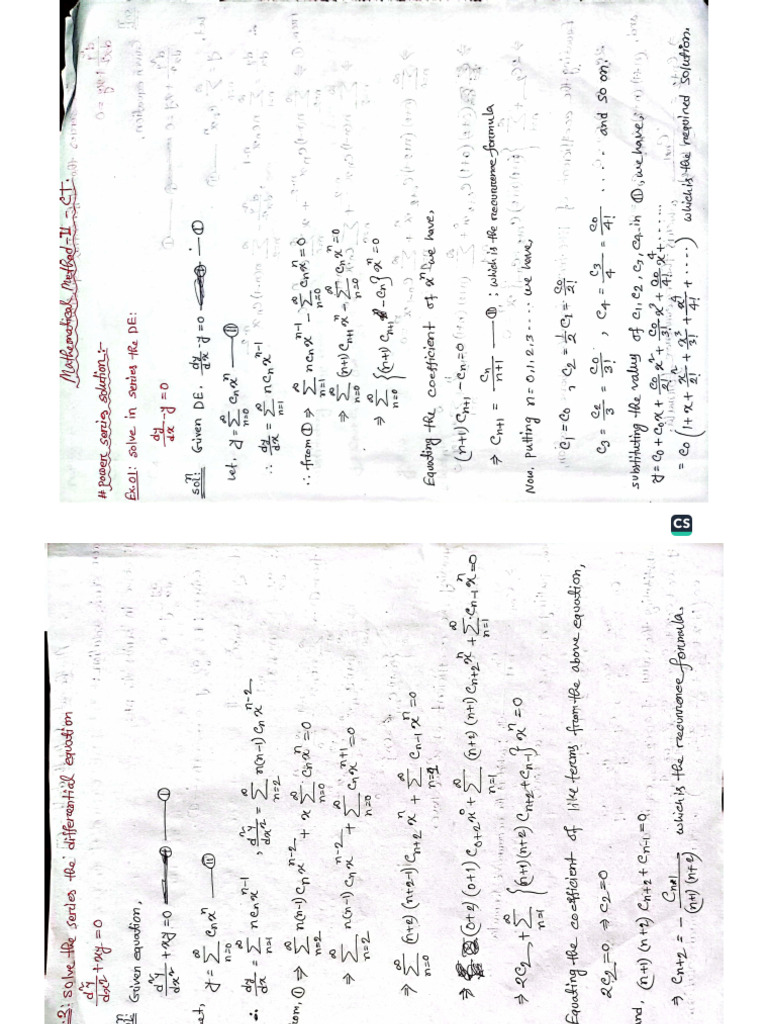 Mathematical Method-II - CT.
# Power series solution:-
Ex.01: solve in series the DE:
dy/dx - y = 0
Sol^n: Given DE. dy/dx - y = 0 — ①
Let, y = ∑_{n=0}^{∞} c_n x^n — ⑪
∴ dy/dx = ∑_{n=1}^{∞} n c_n x^{n-1}
∴ from ① ⇒ ∑_{n=1}^{∞} n c_n x^{n-1} - ∑_{n=0}^{∞} c_n x^n = 0
⇒ ∑_{n=0}^{∞} (n+1) c_{n+1} x^n - ∑_{n=0}^{∞} c_n x^n = 0
⇒ ∑_{n=0}^{∞} {(n+1) c_{n+1} - c_n} x^n = 0
Equating the coefficient of x^n we have,
(n+1) c_{n+1} - c_n = 0
⇒ c_{n+1} = c_n/(n+1) — ⑪ ; which is the recurrence formula
Now, putting n = 0, 1, 2, 3 .... we have,
c_1 = c_0, c_2 = 1/2 c_1 = c_0/2!
c_3 = c_2/3 = c_0/3!, c_4 = c_3/4 = c_0/4! ..... and so on.
substituting the value of c_1, c_2, c_3, c_4 in ⑪, we have,
y = c_0 + c_0 x + c_0/2! x^2 + c_0/3! x^3 + c_0/4! x^4 + ......
= c_0 (1 + x + x^2/2! + x^3/3! + x^4/4! + ....) which is the required solution.
CS
.3: solve the series the differential equation
d^2y/dx^2 + xy = 0
Given equation,
d^2y/dx^2 + xy = 0 — ①
y = ∑_{n=0}^{∞} c_n x^n — ⑪
∴ dy/dx = ∑_{n=1}^{∞} n c_n x^{n-1}, d^2y/dx^2 = ∑_{n=2}^{∞} n(n-1) c_n x^{n-2}
rom, ① ⇒ ∑_{n=2}^{∞} n(n-1) c_n x^{n-2} + x ∑_{n=0}^{∞} c_n x^n = 0
⇒ ∑_{n=2}^{∞} n(n-1) c_n x^{n-2} + ∑_{n=0}^{∞} c_n x^{n+1} = 0
⇒ ∑_{n=0}^{∞} (n+2)(n+2-1) c_{n+2} x^n + ∑_{n=1}^{∞} c_{n-1} x^n = 0
⇒ (0+2)(0+1) c_{0+2} x^0 + ∑_{n=1}^{∞} (n+2)(n+1) c_{n+2} x^n + ∑_{n=1}^{∞} c_{n-1} x^n = 0
⇒ 2c_2 + ∑_{n=1}^{∞} {(n+1)(n+2) c_{n+2} + c_{n-1}} x^n = 0
Equating the coefficient of like terms from the above equation,
2c_2 = 0 ⇒ c_2 = 0
and, (n+1)(n+2) c_{n+2} + c_{n-1} = 0
⇒ c_{n+2} = - c_{n-1}/((n+1)(n+2)) which is the recurrence formula.